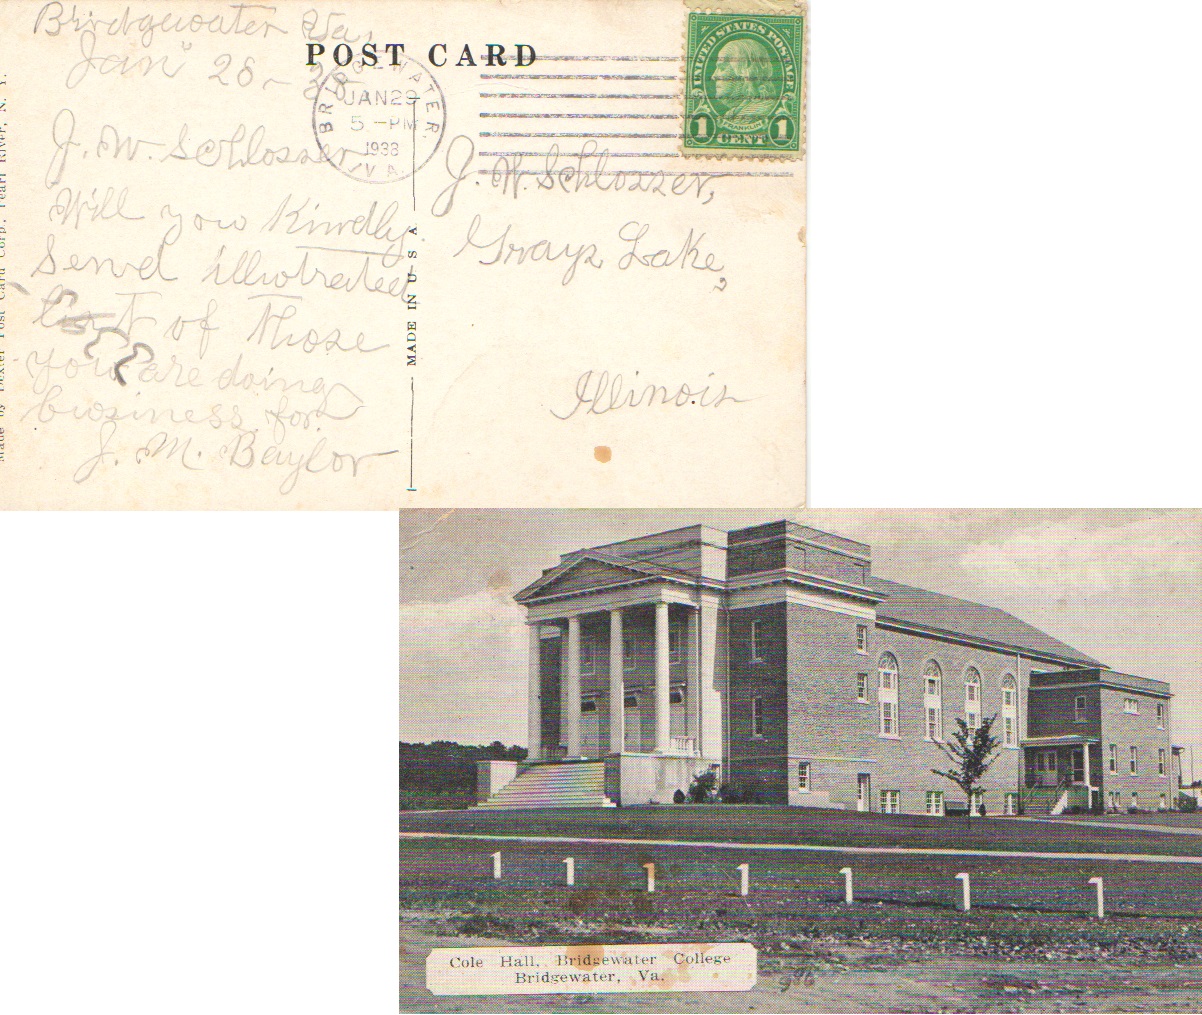 Bridgewater Va,
Jan" 28-38
POST CARD
BRIDGEWATER.
JAN 29
5 - PM
1938
VA.
UNITED STATES POSTAGE
FRANKLIN
1 CENT 1
J. W. Schlosser
Will you Kindly
Send illustrated
list of those
you are doing
business for.
J. M. Baylor
J. W. Schlosser,
Grays Lake,
Illinois
MADE IN U S A
Made by Dexter Post Card Corp., Pearl River, N. Y.
Cole Hall, Bridgewater College
Bridgewater, Va.